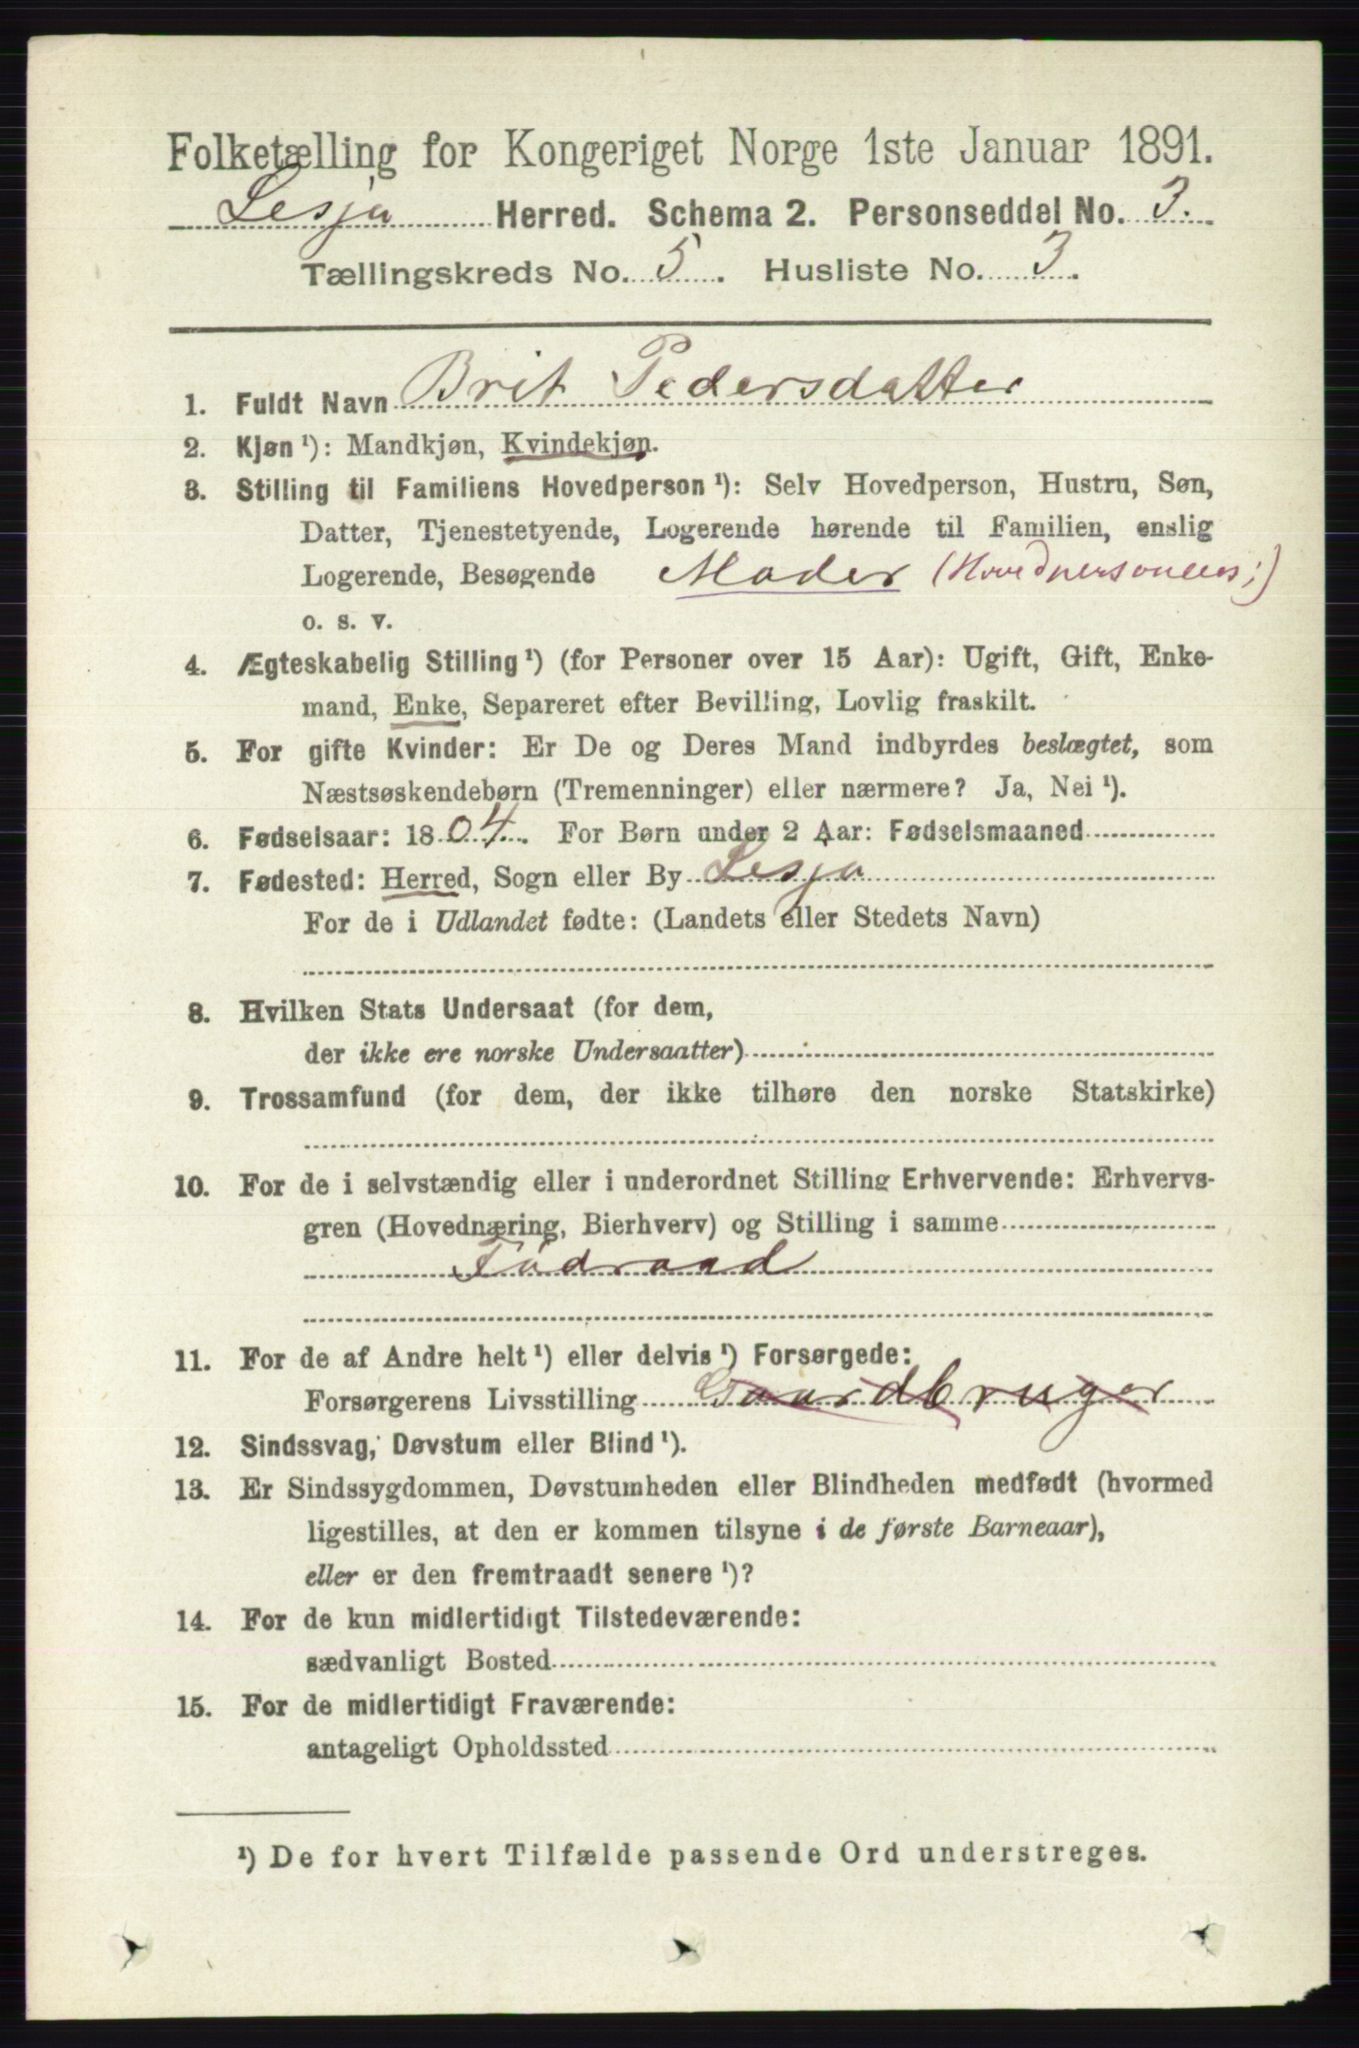 Folketælling for Kongeriget Norge 1ste Januar 1891.
Lesja Herred. Schema 2. Personseddel No. 3.
Tællingskreds No. 5. Husliste No. 3.
1. Fuldt Navn Brit Pedersdatter
2. Kjøn ¹): Mandkjøn, Kvindekjøn.
3. Stilling til Familiens Hovedperson ¹): Selv Hovedperson, Hustru, Søn,
Datter, Tjenestetyende, Logerende hørende til Familien, enslig
Logerende, Besøgende Moder (Hovedpersonens;)
o. s. v.
4. Ægteskabelig Stilling ¹) (for Personer over 15 Aar): Ugift, Gift, Enke-
mand, Enke, Separeret efter Bevilling, Lovlig fraskilt.
5. For gifte Kvinder: Er De og Deres Mand indbyrdes beslægtet, som
Næstsøskendebørn (Tremenninger) eller nærmere? Ja, Nei ¹).
6. Fødselsaar: 1804. For Børn under 2 Aar: Fødselsmaaned
7. Fødested: Herred, Sogn eller By Lesja
For de i Udlandet fødte: (Landets eller Stedets Navn)
8. Hvilken Stats Undersaat (for dem,
der ikke ere norske Undersaatter)
9. Trossamfund (for dem, der ikke tilhøre den norske Statskirke)
10. For de i selvstændig eller i underordnet Stilling Erhvervende: Erhvervs-
gren (Hovednæring, Bierhverv) og Stilling i samme
Födraad
11. For de af Andre helt ¹) eller delvis ¹) Forsørgede:
Forsørgerens Livsstilling Gaardbruger
12. Sindssvag, Døvstum eller Blind ¹).
13. Er Sindssygdommen, Døvstumheden eller Blindheden medfødt (hvormed
ligestilles, at den er kommen tilsyne i de første Barneaar),
eller er den fremtraadt senere ¹)?
14. For de kun midlertidigt Tilstedeværende:
sædvanligt Bosted
15. For de midlertidigt Fraværende:
antageligt Opholdssted
¹) De for hvert Tilfælde passende Ord understreges.